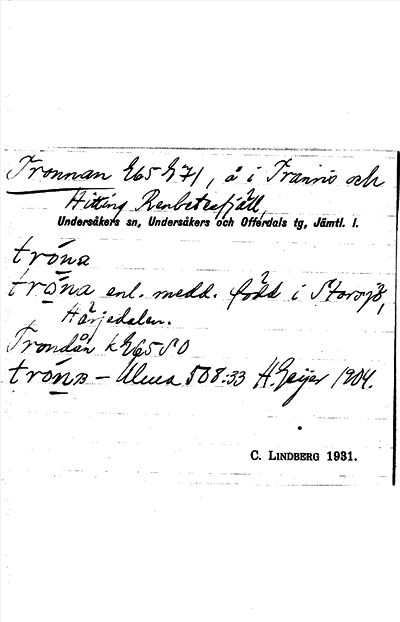 Tronnan 265 271, å i Tranris och
Hitting Renbetesfjäll,
Undersåkers sn, Undersåkers och Offerdals tg, Jämtl. l.
tróna
tróna enl. medd. född i Storsjö,
Härjedalen.
Trondån k 265 SO
tróna – Ulma 508:33 H. Geijer 1904.
C. LINDBERG 1931.